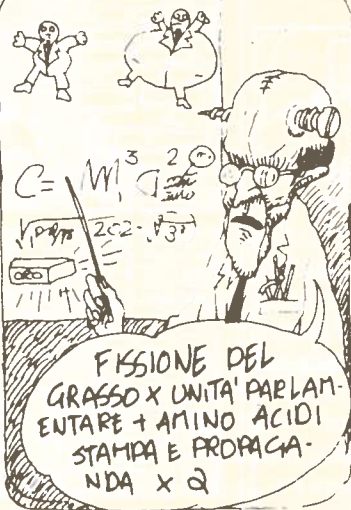 FISSIONE DEL
GRASSO X UNITA' PARLAM-
ENTARE + AMINO ACIDI
STAMPA E PROPAGA-
NDA X 2